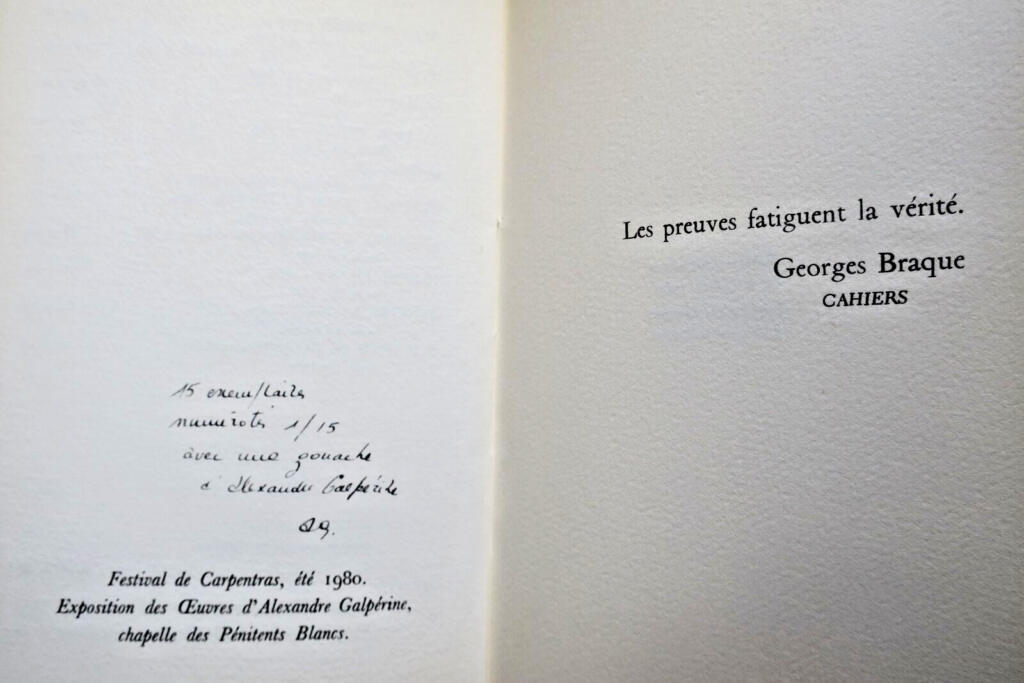 15 exemplaires
numérotés 1/15
avec une gouache
d'Alexandre Galpérine
AG.
Festival de Carpentras, été 1980.
Exposition des Œuvres d'Alexandre Galpérine,
chapelle des Pénitents Blancs.
Les preuves fatiguent la vérité.
Georges Braque
CAHIERS